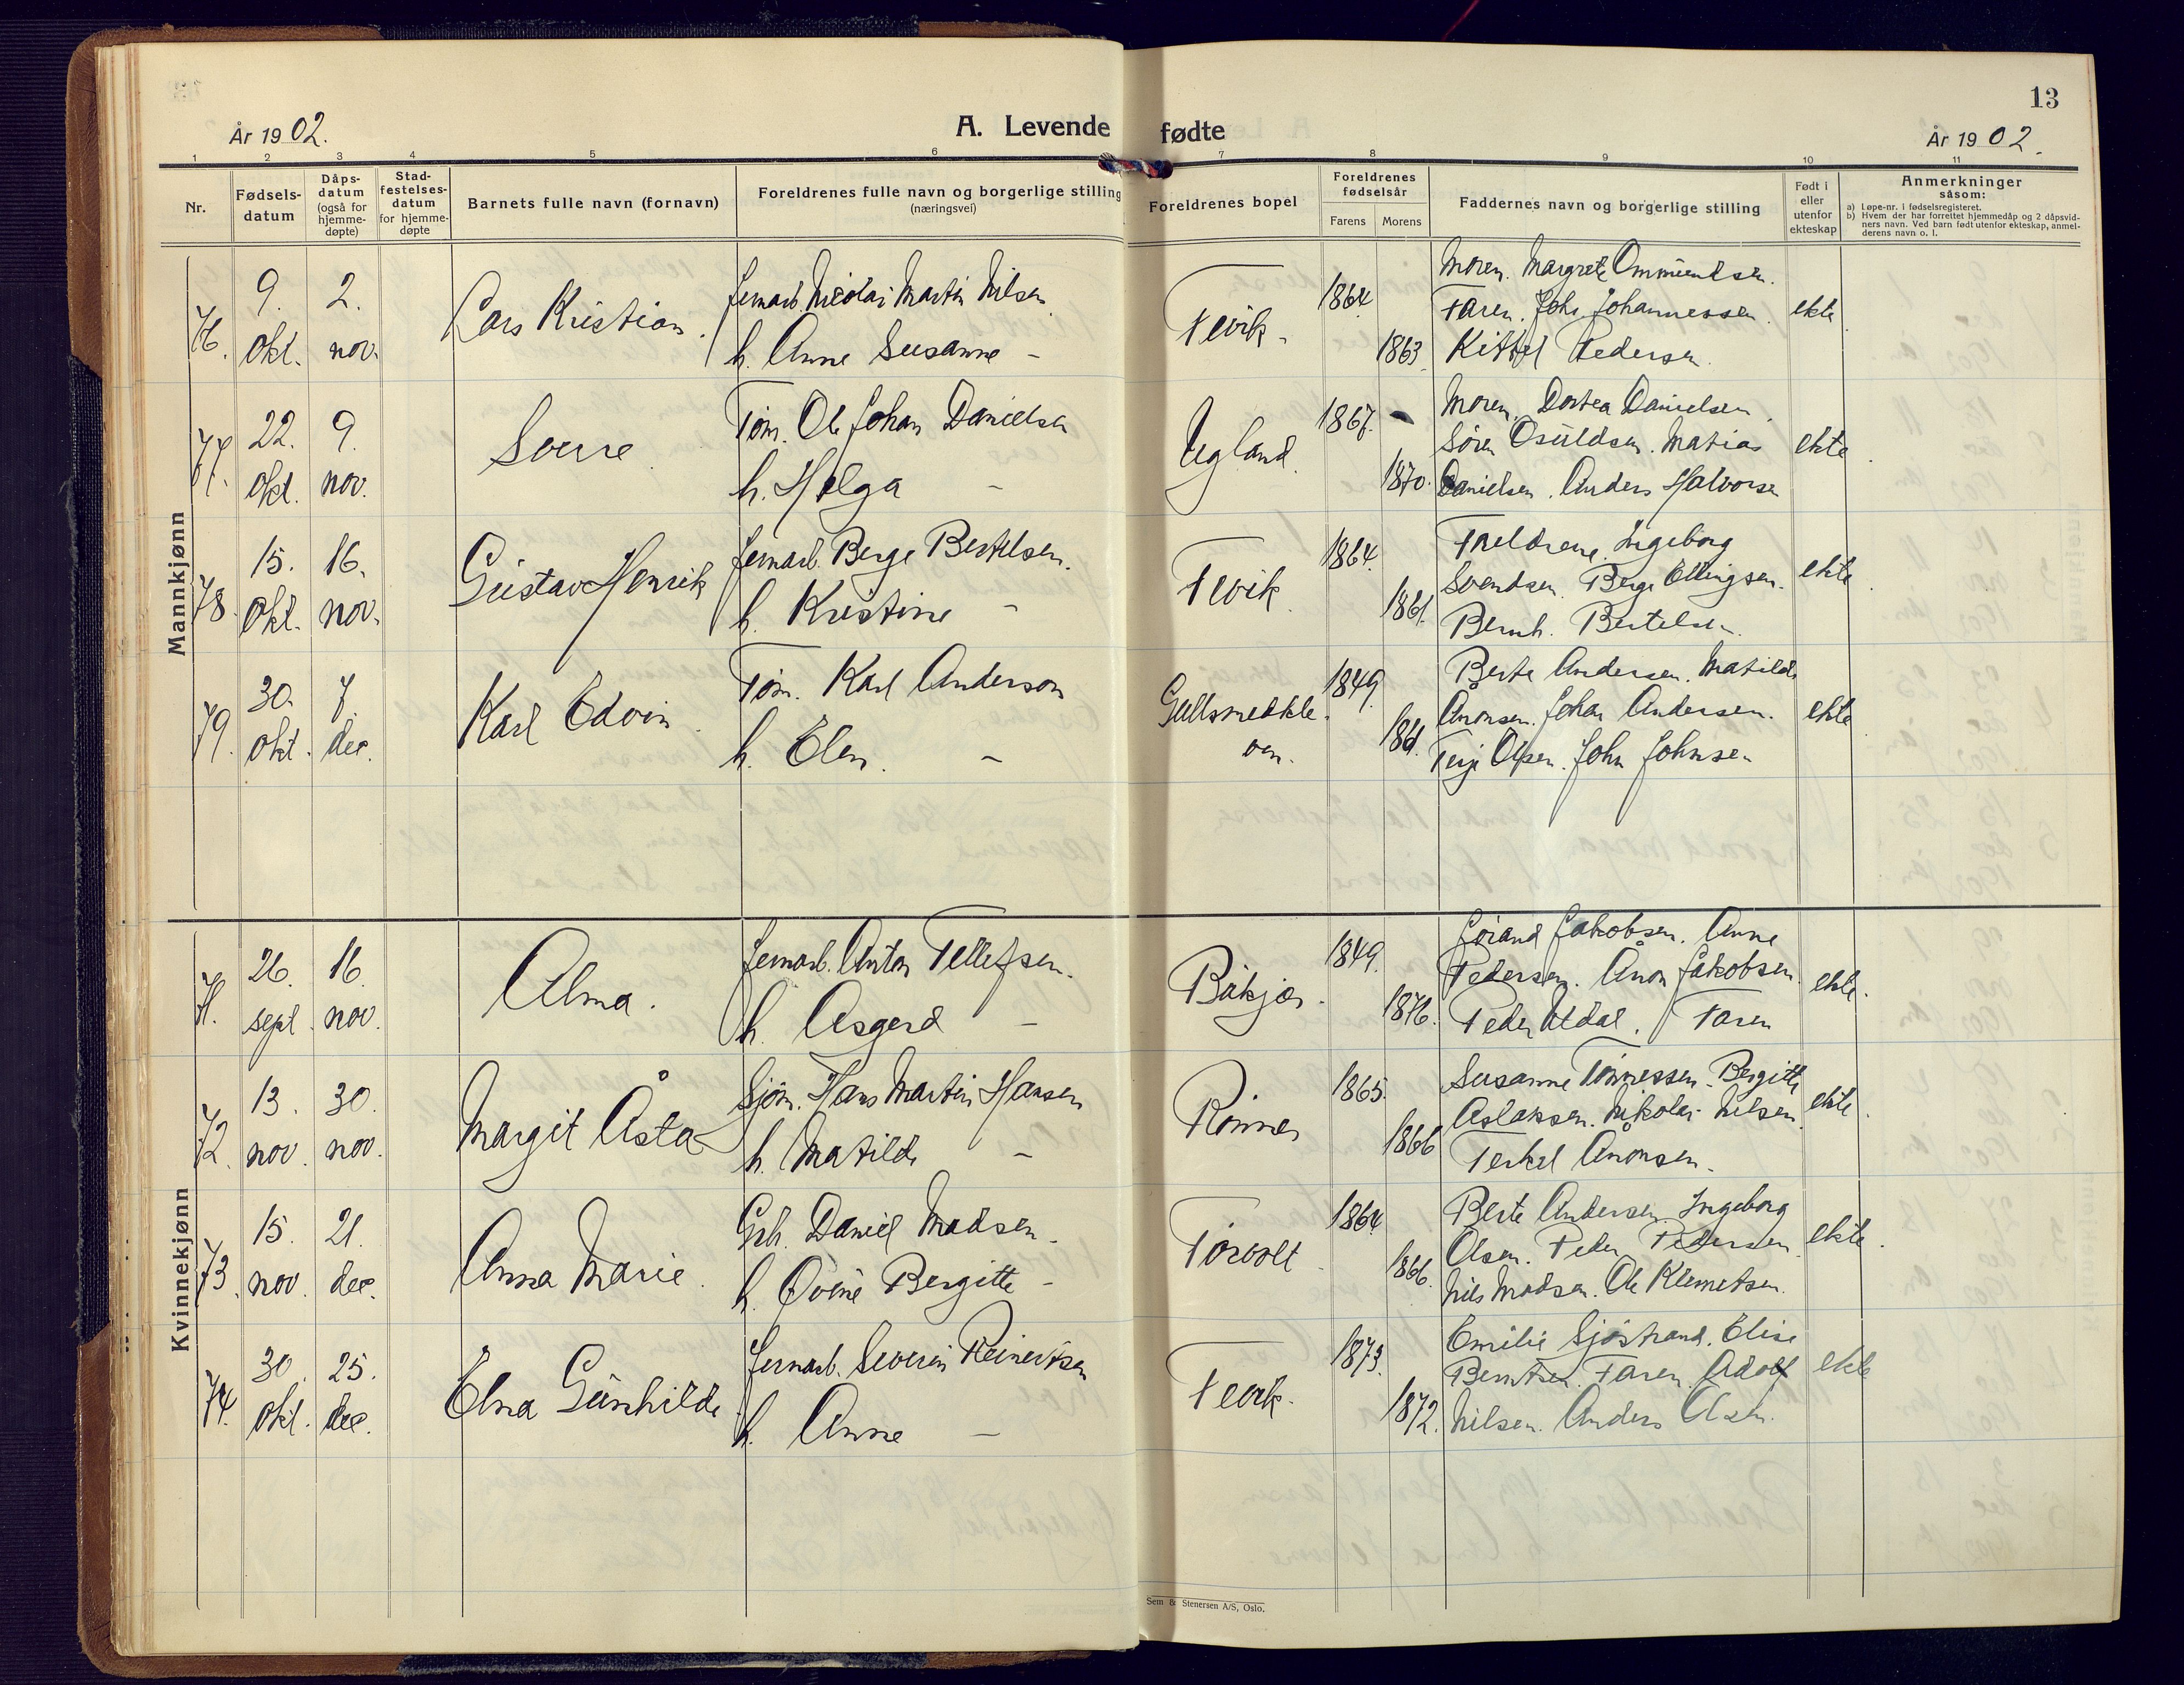 13
År 1902.
A. Levende fødte
År 1902.
1 2 3 4 5 6 7 8 9 10 11
Nr.
Fødsels-
datum
Dåps-
datum
(også for
hjemme-
døpte)
Stad-
festelses-
datum
for hjemme-
døpte
Barnets fulle navn (fornavn)
Foreldrenes fulle navn og borgerlige stilling
(næringsvei)
Foreldrenes bopel
Foreldrenes
fødselsår
Farens Morens
Faddernes navn og borgerlige stilling
Født i
eller
utenfor
ekteskap
Anmerkninger
såsom:
a) Løpe-nr. i fødselsregisteret.
b) Hvem der har forrettet hjemmedåp og 2 dåpsvid-
ners navn. Ved barn født utenfor ekteskap, anmel-
derens navn o. l.
Mannkjønn
76.
9.
okt.
2.
nov.
Lars Kristian.
Jernarb. Nicolai Martin Nilsen
h. Anne Susanne –
Fevik.
1864
1863
Moren. Margrete Ommundsen.
Faren. Johs. Johannessen.
Kittel Pedersen.
ekte
77.
22.
okt.
9.
nov.
Sverre
Tøm. Ole Johan Danielsen
h. Helga –
Ugland.
1867.
1870.
Moren. Dortea Danielsen.
Søren Osuldsen. Matias
Danielsen. Anders Halvorsen
ekte
78.
15.
okt.
16.
nov.
Gustav Henrik
Jernarb. Berge Bertelsen.
h. Kristine –
Fevik
1864.
1861.
Foreldrene. Ingeborg
Svendsen. Berge Ellingsen.
Bernh. Bertelsen.
ekte
79.
30.
okt.
7.
dec.
Karl Edvin
Tøm. Karl Anderson
h. Elen. –
Gullsmedkle
ven.
1849.
1861.
Berte Andersen. Matilde
Ånonsen. Johan Andersen.
Terje Olsen. John Johnsen
ekte
Kvinnekjønn
71.
26.
sept.
16.
nov.
Alma.
Jernarb. Anton Tellefsen.
h. Asgerd –
Båkjær.
1849.
1876.
Jørand Jakobsen. Anne
Pedersen. Ånon Jakobsen
Peder Uldal. Faren
ekte.
72.
13.
nov.
30.
nov.
Margit Åsta
Sjøm. Hans Martin Hansen
h. Matilde –
Rønnes
1865.
1866
Susanne Tønnessen. Bergitte
Aslaksen. Nikolai Nilsen.
Terkel Ånonsen.
ekte.
73.
15.
nov.
21.
dec.
Anna Marie.
Grb. Daniel Madsen.
h. Øvine Bergitte –
Torvolt
1864
1866.
Berte Andersen. Ingeborg
Olsen. Peder Pedersen.
Nils Madsen. Ole Klemetsen.
ekte.
74.
30.
okt.
25.
dec.
Elna Gunhilde
Jernarb. Severin Reinertsen
h. Anne –
Fevik.
1873.
1872.
Emilie Sjøstrand. Elise
Berntsen. Faren. Adolf
Nilsen. Anders Olsen.
ekte
Sem & Stenersen A/S, Oslo.